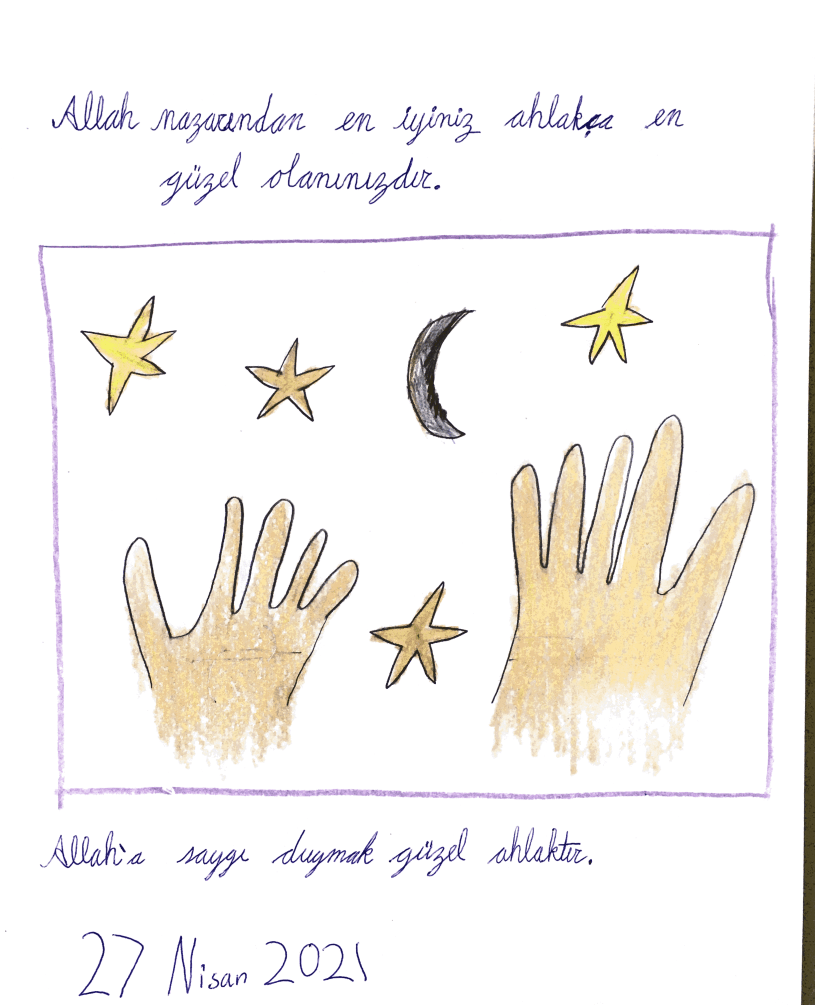 Allah nazarından en iyiniz ahlakça en
güzel olanınızdır.
Allah'a saygı duymak güzel ahlaktır.
27 Nisan 2021